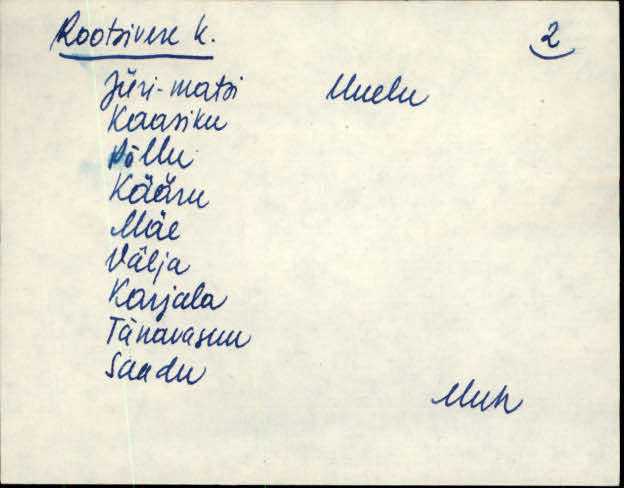 Rootsivere k. 2
Jüri-matsi Uuelu
Kaasiku
Põllu
Kääru
Mäe
Välja
Karjala
Tänavasuu
Saadu
Muh